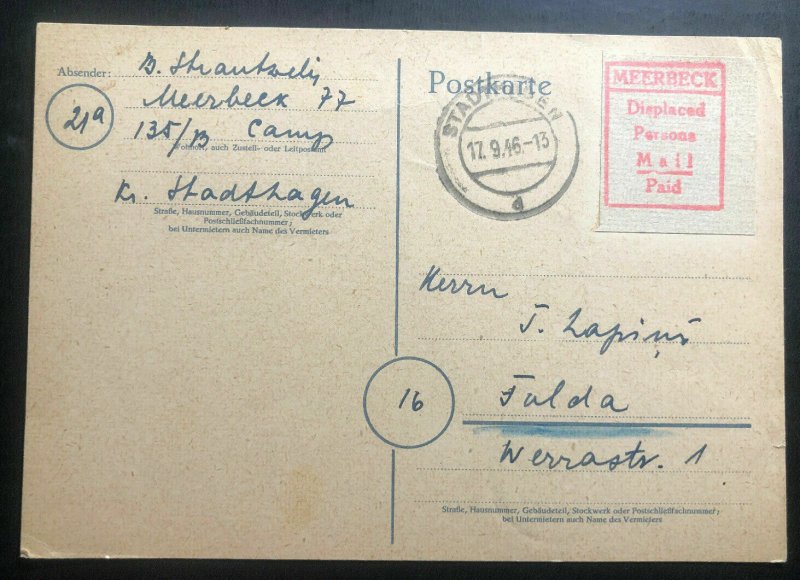 Absender: B. Strautzelis
Meerbeck 77
21a
135/B Camp
Wohnort, auch Zustell- oder Leitpostamt
Kr. Stadthagen
Straße, Hausnummer, Gebäudeteil, Stockwerk oder
Postschließfachnummer;
bei Untermietern auch Name des Vermieters
Postkarte
STADTHAGEN
17.9.46-13
d
MEERBECK
Displaced
Persons
Mail
Paid
Herrn
T. Lapiņš
16
Fulda
Werrastr. 1
Straße, Hausnummer, Gebäudeteil, Stockwerk oder Postschließfachnummer;
bei Untermietern auch Name des Vermieters